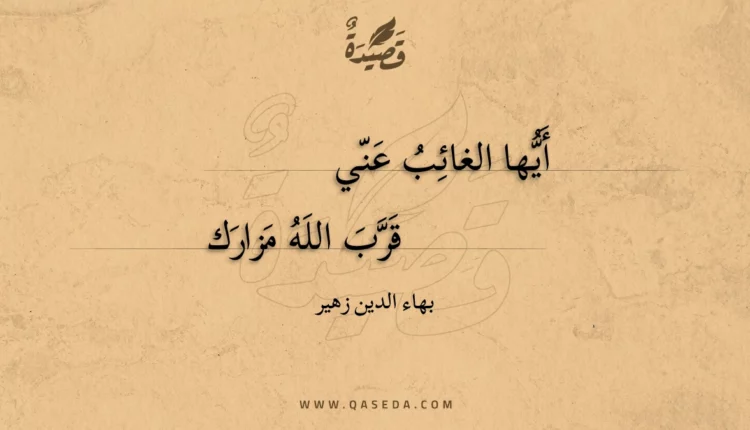 قَصِيْدَةٌ
أَيُّها الغائِبُ عَنّي
قَرَّبَ اللَهُ مَزارَك
بهاء الدين زهير
WWW.QASEDA.COM